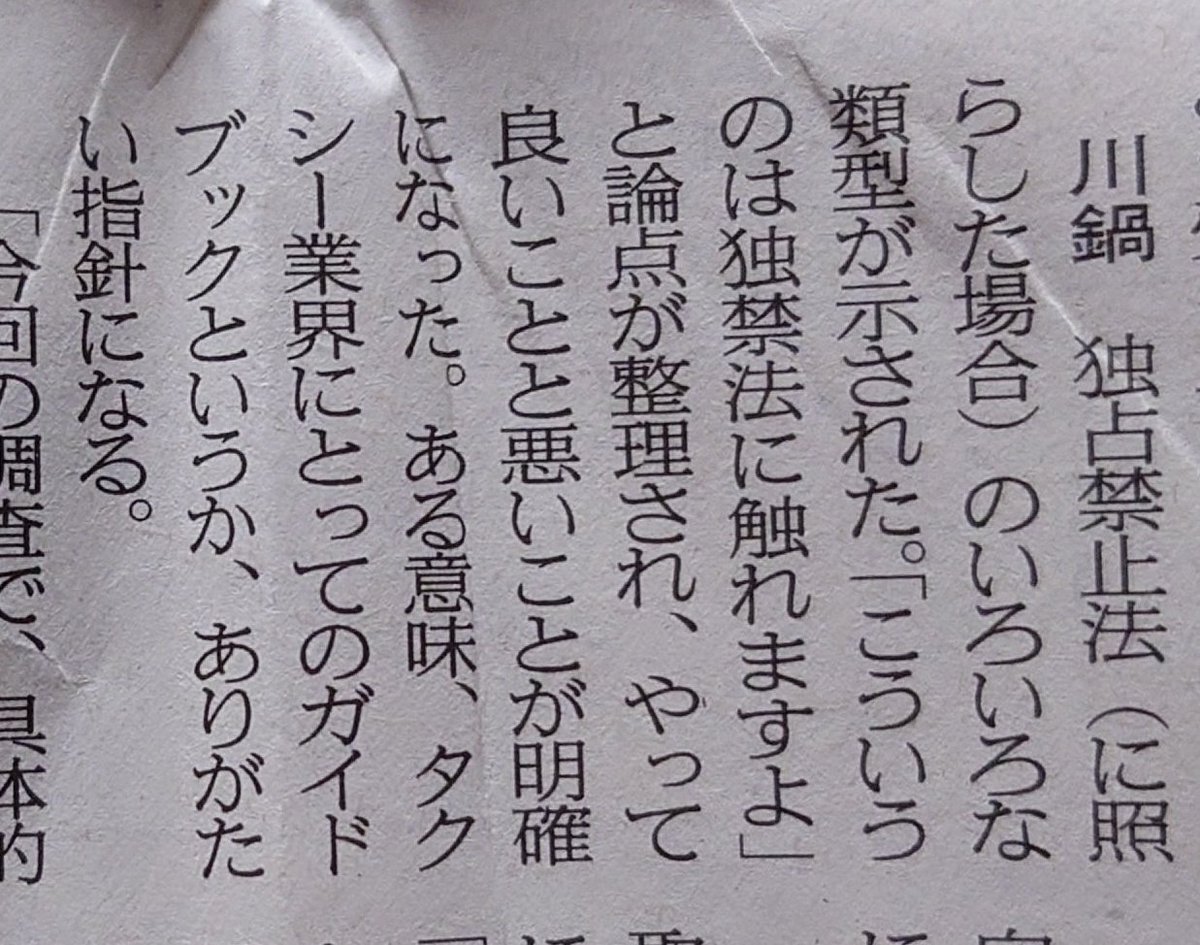 川鍋　独占禁止法（に照
らした場合）のいろいろな
類型が示された。「こういう
のは独禁法に触れますよ」
と論点が整理され、やって
良いことと悪いことが明確
になった。ある意味、タク
シー業界にとってのガイド
ブックというか、ありがた
い指針になる。
「今回の調査で、具体的